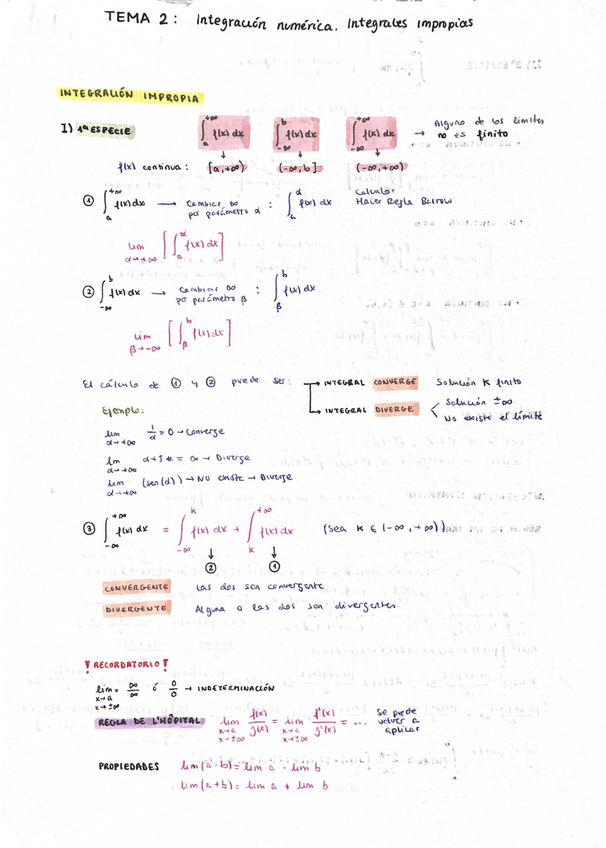 TEMA 2: Integración numérica. Integrales impropias
INTEGRACIÓN IMPROPIA
I) 1ª ESPECIE ∫_a^{+∞} f(x) dx ∫_{-∞}^b f(x) dx ∫_{-∞}^{+∞} f(x) dx → Alguno de los límites no es finito
↓ ↓ ↓
f(x) continua: [a,+∞) (-∞,b] (-∞,+∞)
① ∫_a^{+∞} f(x) dx → Cambiar ∞ por parámetro α : ∫_a^α f(x) dx Calcular Hacer Regla Barrow
lim_{α→+∞} [∫_a^α f(x) dx]
② ∫_{-∞}^b f(x) dx → Cambiar ∞ por parámetro β : ∫_β^b f(x) dx
lim_{β→-∞} [∫_β^b f(x) dx]
El cálculo de ① y ② puede ser: → INTEGRAL CONVERGE Solución K finito
→ INTEGRAL DIVERGE < Solución ±∞
No existe el límite
Ejemplo:
lim_{α→+∞} 1/α = 0 → Converge
lim_{α→+∞} = ∞ → Diverge
lim_{α→+∞} (sen(α)) → No existe → Diverge
③ ∫_{-∞}^{+∞} f(x) dx = ∫_{-∞}^k f(x) dx + ∫_k^{+∞} f(x) dx (Sea K ∈ (-∞,+∞))
↓ ↓
② ①
CONVERGENTE Las dos son convergente
DIVERGENTE Alguna o las dos son divergentes
! RECORDATORIO !
lim_{x→a, x→±∞} = ∞/∞ ó 0/0 → INDETERMINACIÓN
REGLA DE L'HÔPITAL lim_{x→a, x→±∞} f(x)/g(x) = lim_{x→a, x→±∞} f'(x)/g'(x) = ... Se puede volver a aplicar
PROPIEDADES lim(a·b) = lim a · lim b
lim(a+b) = lim a + lim b